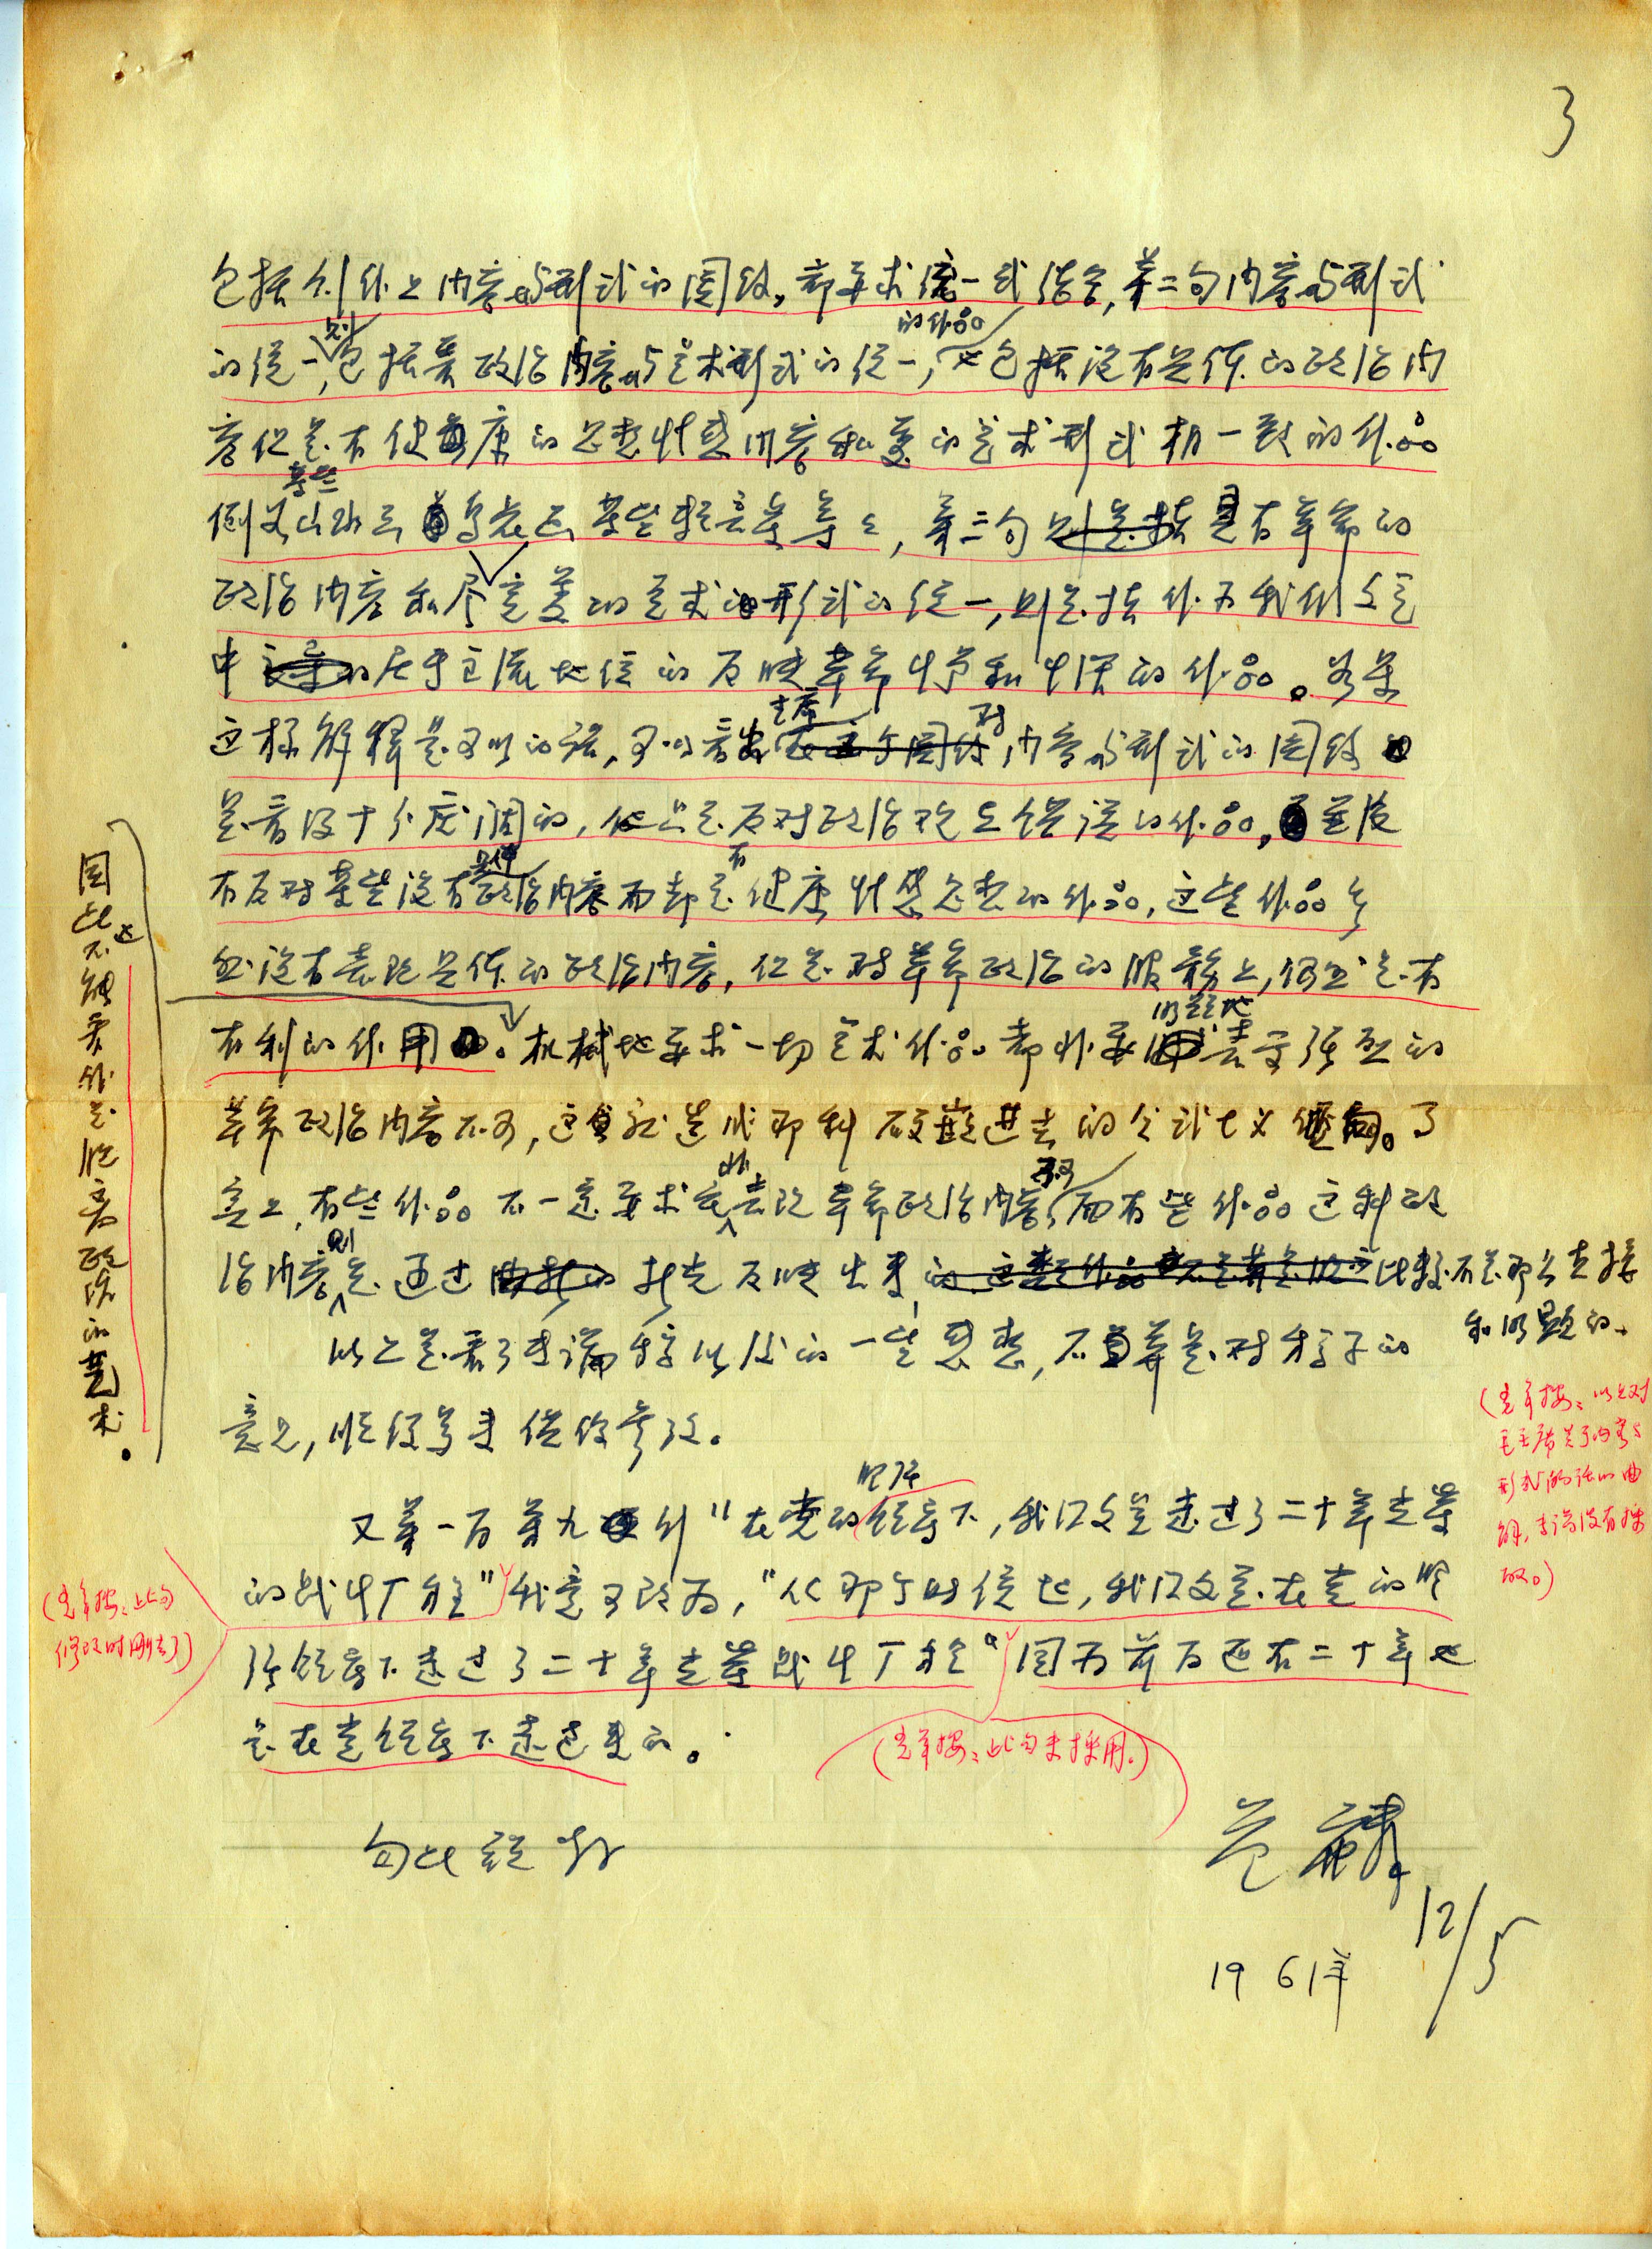 3
包括创作上内容与形式的关系,都要求统一或结合,第二句内容与形式
的统一,则包括着政治内容与艺术形式的统一,也包括没有具体的政治内
容但是有健康的思想情感内容和美的艺术形式相一致的作品
例如某些山水画鸟花画某些轻音乐等等,第三句具有革命的
政治内容和尽善美的艺术形式的统一,则是指作为我们文艺
中居于主流地位的反映革命斗争和生活的作品。如果
这样解释是可以的话,可以看出主席对内容与形式的关系
是看得十分广阔的,他只是反对政治观点错误的作品,并没
有反对某些没有具体政治内容而却是有健康情感思想的作品,这些作品
虽没有表现具体的政治内容,但是对革命政治的服务上,仍然是有
有利的作用。机械地要求一切艺术作品都非要明显地表等强烈的
革命政治内容不可,这就造成那种硬嵌进去的公式主义倾向。事
实上,有些作品不一定要求非去改革命政治内容不可,而有些作品这种政
治内容则是通过折光反映出来,比较不是那么直接
和明显的。
因此也不能看作是脱离政治的艺术。
以上是看了来稿以后的一些感想,不算是对稿子的
意见,顺便写来供你参考。
(光年按:以上对
毛主席关于内容与
形式的话的曲
解,未被采
取。)
又第一页第九行"在党的领导下,我们文艺走过了二十年光荣
的战斗历程"我意可改为,"从那个时候起,我们文艺在党的明
(光年按:此句
修改时删去了)
确领导下走过了二十年光荣战斗历程"因为前面还有二十年也
是在党领导下走过来的。
(光年按:此句未採用。)
匆此 致敬
荒麟
12/5
1961年